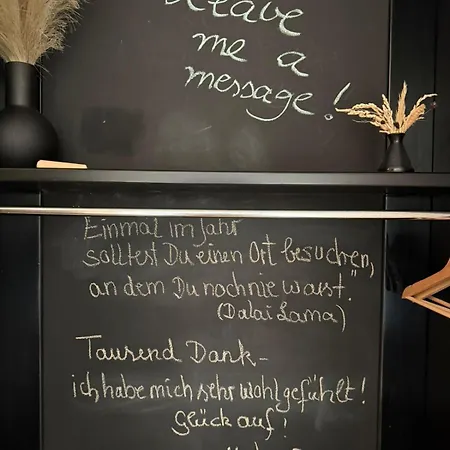 Leave
me a
message!
Einmal im Jahr
solltest Du einen Ort besuchen,
an dem Du noch nie warst."
(Dalai Lama)
Tausend Dank –
ich habe mich sehr wohl gefühlt!
Glück auf!